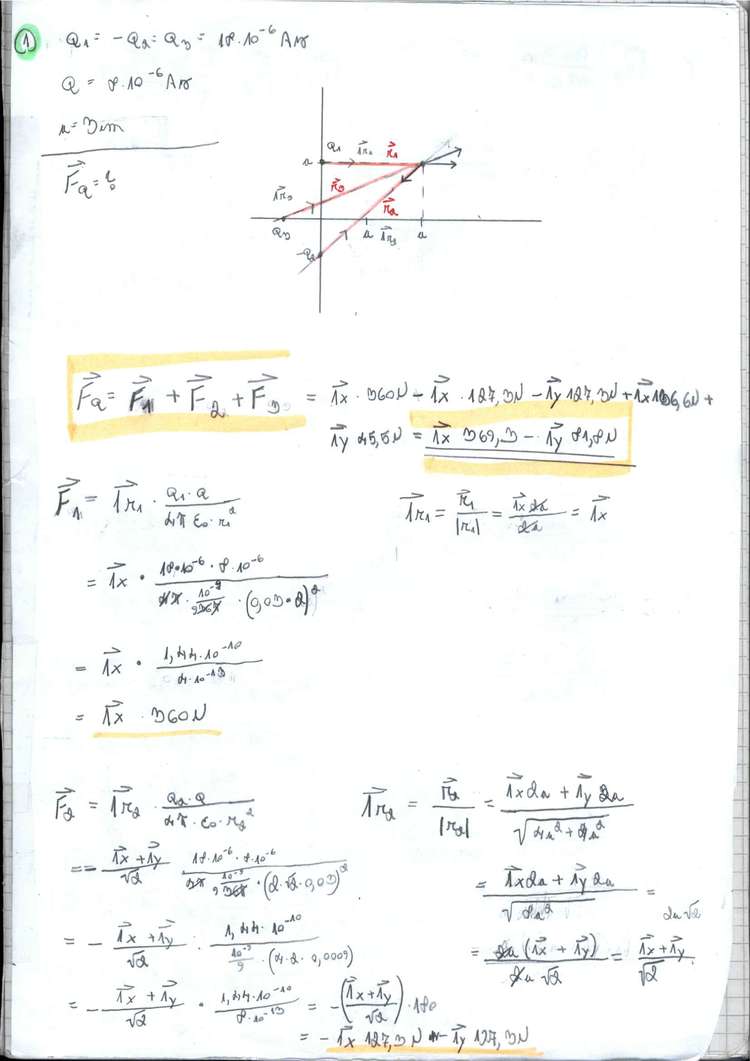 1 Q1 = -Q2 = Q3 = 18·10⁻⁶ As
Q = 8·10⁻⁶ As
a = 3cm
F⃗Q = ?
a Q1 1⃗r1 r⃗1
1⃗r3 r⃗3 r⃗2
Q3 a 1⃗r2 a
-Q2
F⃗Q = F⃗1 + F⃗2 + F⃗3 = 1⃗x · 360N - 1⃗x · 127,3N - 1⃗y 127,3N + 1⃗x 136,6N +
1⃗y 45,5N = 1⃗x 369,3 - 1⃗y 81,8N
F⃗1 = 1⃗r1 · Q1·Q / 4π ε0·r1² 1⃗r1 = r⃗1 / |r1| = 1⃗x 2a / 2a = 1⃗x
= 1⃗x · 18·10⁻⁶ · 8·10⁻⁶ / 4π · 10⁻⁹ / 36π · (0,03·2)²
= 1⃗x · 1,44·10⁻¹⁰ / 4·10⁻¹³
= 1⃗x · 360N
F⃗2 = 1⃗r2 · Q2·Q / 4π·ε0·r2² 1⃗r2 = r⃗2 / |r2| = 1⃗x2a + 1⃗y 2a / √4a² + 4a²
= - 1⃗x + 1⃗y / √2 18·10⁻⁶ · 8·10⁻⁶ / 4π 10⁻⁹ / 36π · (2·√2·0,03)² = 1⃗x2a + 1⃗y 2a / √8a² = 2a√2
= - 1⃗x + 1⃗y / √2 · 1,44·10⁻¹⁰ / 10⁻⁹ / 9 · (4·2·0,0009) = 2a (1⃗x + 1⃗y) / 2a √2 = 1⃗x + 1⃗y / √2
= - 1⃗x + 1⃗y / √2 · 1,44·10⁻¹⁰ / 8·10⁻¹³ = - (1⃗x + 1⃗y / √2) · 180
= - 1⃗x 127,3N - 1⃗y 127,3N